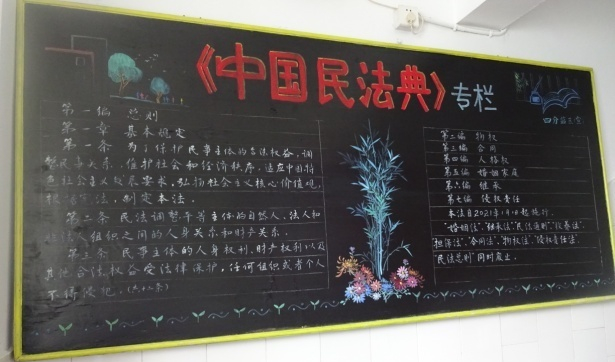 《中国民法典》专栏
第一编 总则
第一章 基本规定
第一条 为了保护民事主体的合法权益，调
整民事关系，维护社会和经济秩序，适应中国特
色社会主义发展要求，弘扬社会主义核心价值观，
根据宪法，制定本法。
第二条 民法调整平等主体的自然人、法人和
非法人组织之间的人身关系和财产关系。
第三条 民事主体的人身权利、财产权利以及
其他合法权益受法律保护，任何组织或者个人
不得侵犯
第二编 物权
第三编 合同
第四编 人格权
第五编 婚姻家庭
第六编 继承
第七编 侵权责任
本法自2021年1月1日起施行。
"婚姻法"、"继承法"、"民法通则"、"收养法"、
"担保法"、"合同法"、"物权法"、"侵权责任法"、
"民法总则"同时废止。